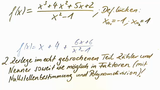 f(x) = x³+4x²+5x+2 / x²-1 , Def.lücken
x₀₁=-1, x₀₂=1
f(x) = x+4 + 6x+6 / x²-1
2 Zerlege im echt gebrochenen Teil Zähler und
Nenner soweit wie möglich in Faktoren (mit
Nullstellenbestimmung und Polynomdivision)!